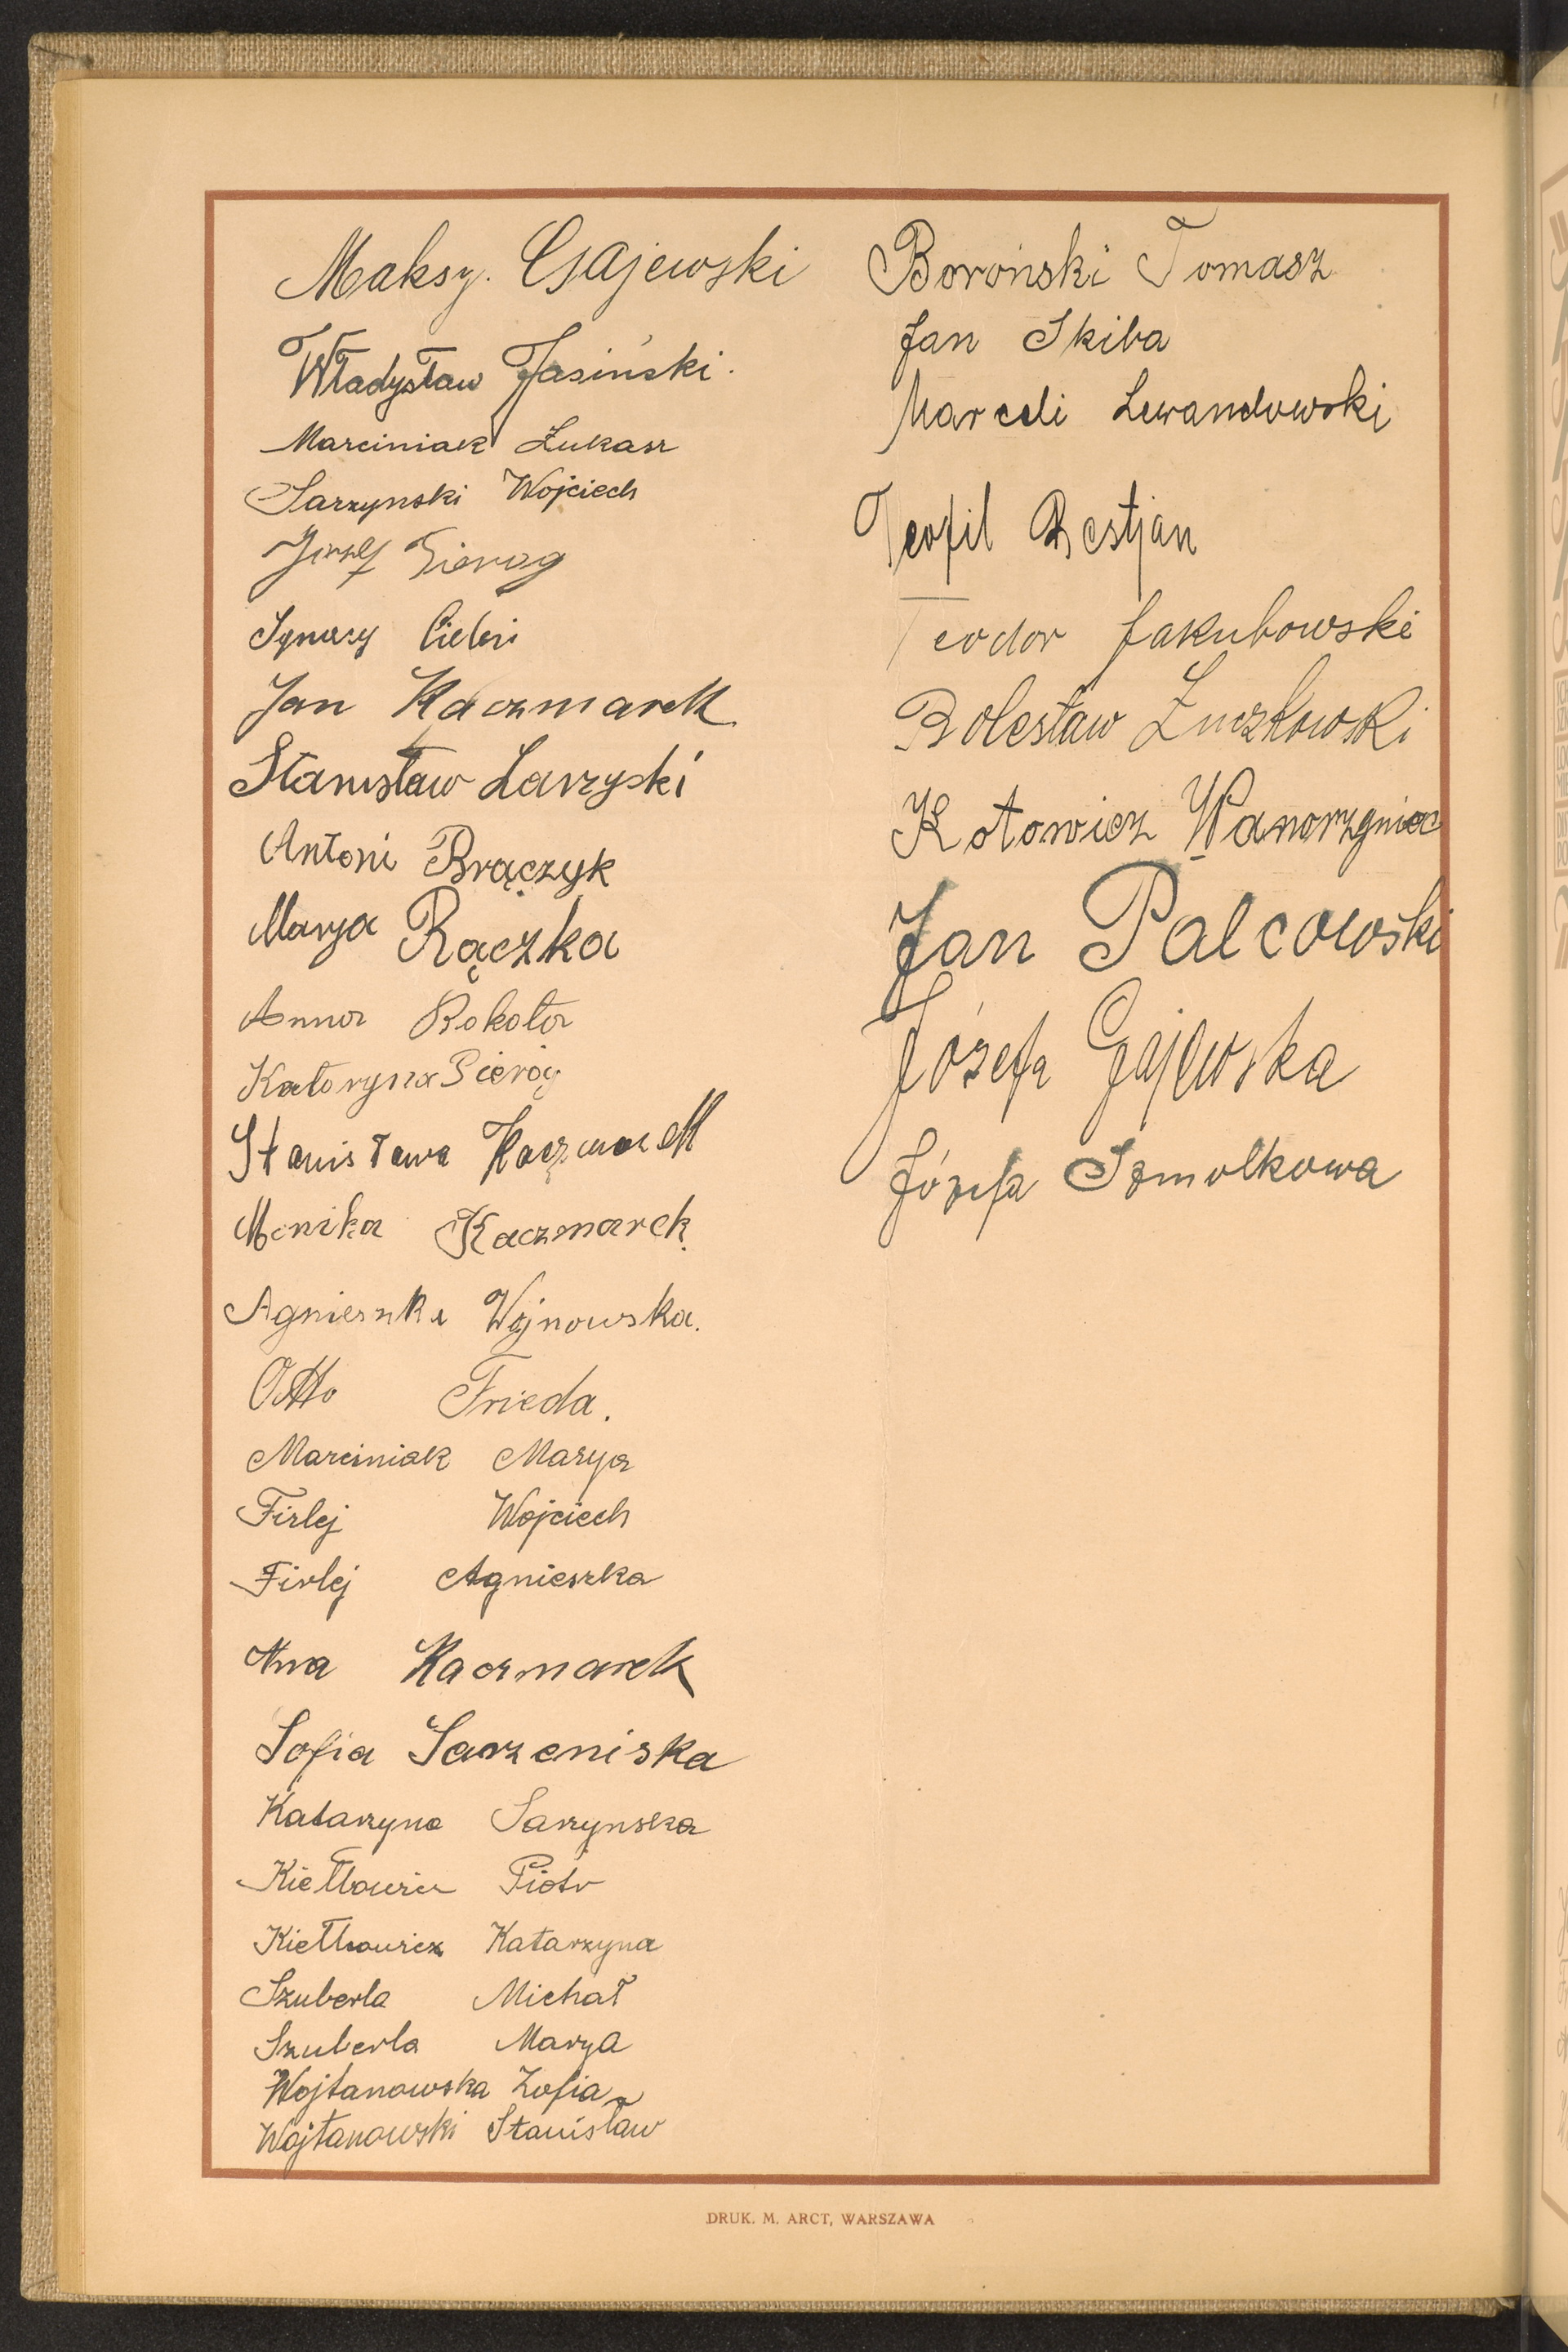 Maksy. Gajewski
Władysław Jasiński.
Marciniak Łukasz
Sarzynski Wojciech
Józef Sierag
Ignacy
Jan Kaczmarek
Stanisław Larzyski
Antoni Brączyk
Marya Rączka
Anna Rokota
Katoryna Pieróg
Stanisława Kaczmarek
Monika Kaczmarek
Agnieszka Wojnowska.
Otto Frieda.
Marciniak Marya
Firlej Wojciech
Firlej Agnieszka
Anna Kaczmarek
Sofia Sarzeniska
Katarzyna Sarzynska
Kiełbowicz Piotr
Kiełbowicz Katarzyna
Szuberla Michał
Szuberla Marya
Wojtanowska Zofia
Wojtanowski Stanisław
Boroński Tomasz
Jan Skiba
Marceli Lewandowski
Teofil Bestjan
Teodor Jakubowski
Bolesław Żuczkowski
Kotowicz
Jan Palcowski
Józefa Gajewska
Józefa Szmolkowa
DRUK. M. ARCT, WARSZAWA